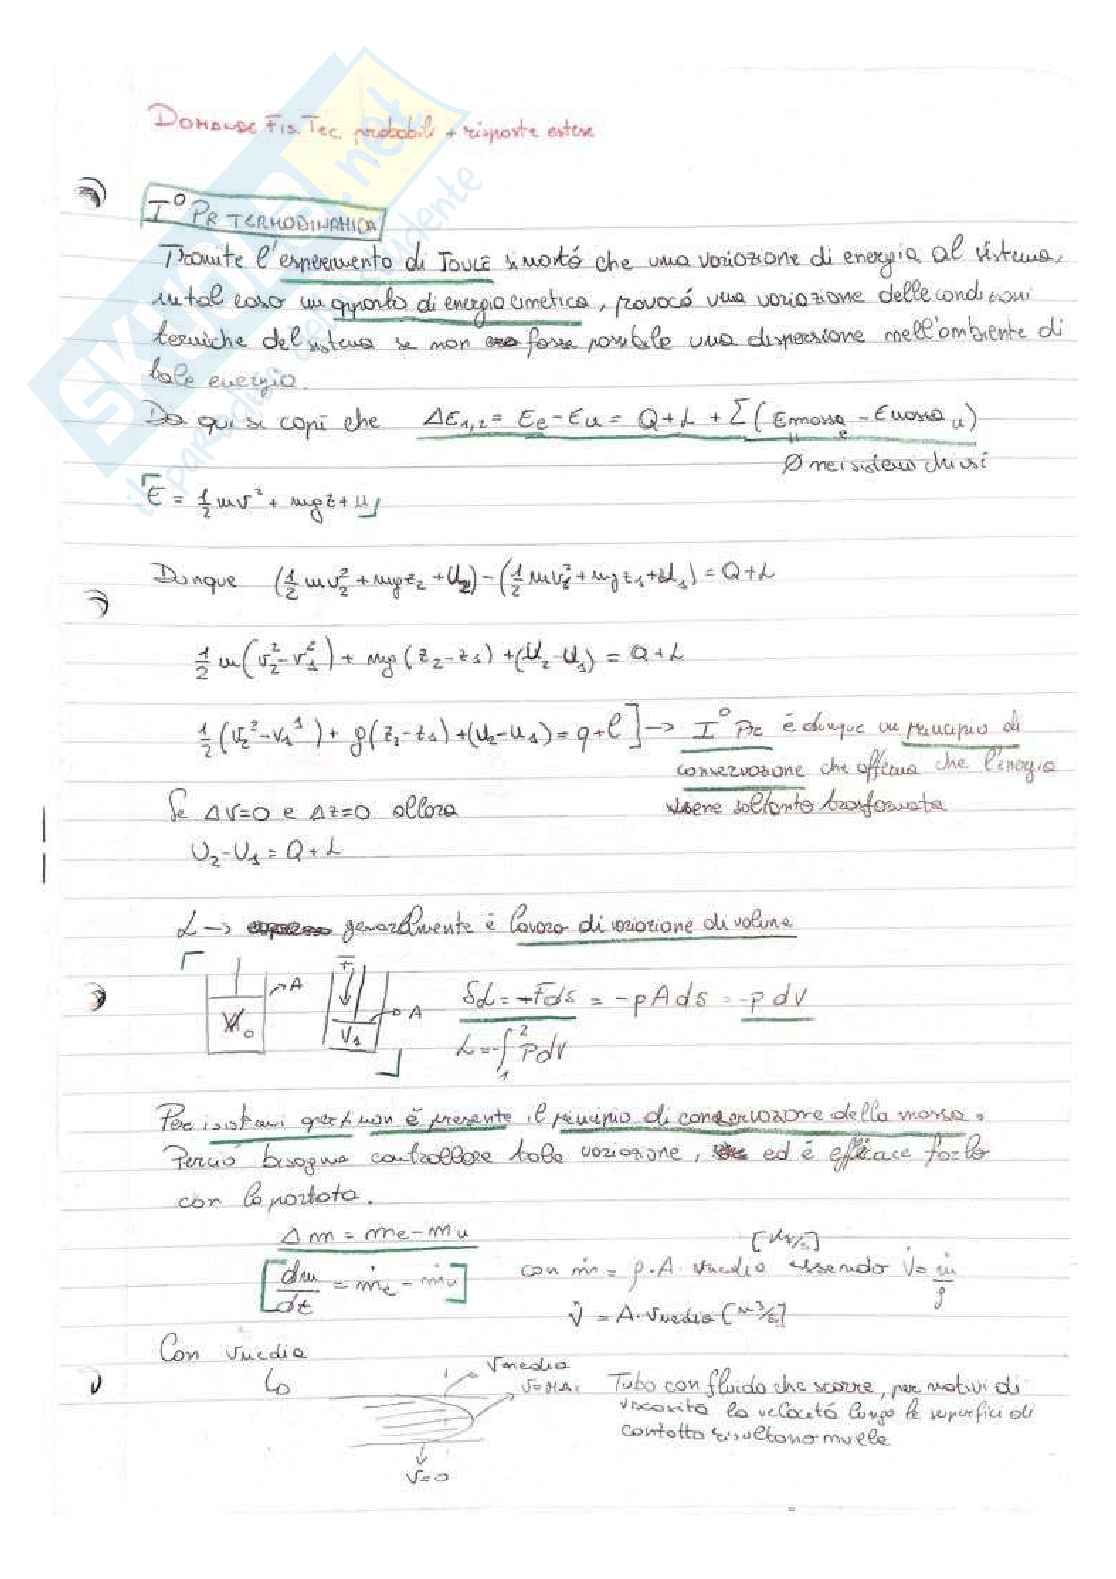 Domande Fis. Tec. probabili + risposte estese
I° PR TERMODINAMICA
Tramite l'esperimento di JOULE si notó che una variazione di energia al sistema,
in tal caso un apporto di energia cinetica, provocó una variazione delle condizioni
termiche del sistema se non fosse possibile una dispersione nell'ambiente di
tale energia.
Da qui si capí che ΔE1,2 = Ee - Eu = Q + L + Σ( Emassa e - Emassa u )
Ø nei sistemi chiusi
E = 1/2 mv² + mgz + U
Dunque (1/2 mv2² + mgz2 + U2) - (1/2 mv1² + mgz1 + U1) = Q + L
1/2 m(v2² - v1²) + mg(z2 - z1) + (U2 - U1) = Q + L
1/2 (v2² - v1²) + g(z2 - z1) + (u2 - u1) = q + l ] → I° Pr è dunque un principio di
conservazione che afferma che l'energia
viene soltanto trasformata
Se ΔV=0 e Δz=0 allora
U2 - U1 = Q + L
L → generalmente è lavoro di variazione di volume
A
F
A
V0
V1
δL = -Fds = -pAds = -p dV
L = -∫1² p dV
Per i sistemi aperti non è presente il principio di conservazione della massa.
Perció bisogna controllare tale variazione, ed é efficace farlo
con la portata.
Δm = me - mu
[kg/s]
[dm/dt = ṁe - ṁu] con ṁ = ρ·A·vmedia essendo V̇ = ṁ/ρ
V̇ = A·vmedia [m³/s]
Con vmedia
vmedia
v=MAX
Tubo con fluido che scorre, per motivi di
viscosità la velocitá lungo le superfici di
contatto risultano nulle
v=0
SKUOLA.net
il paradiso dello studente